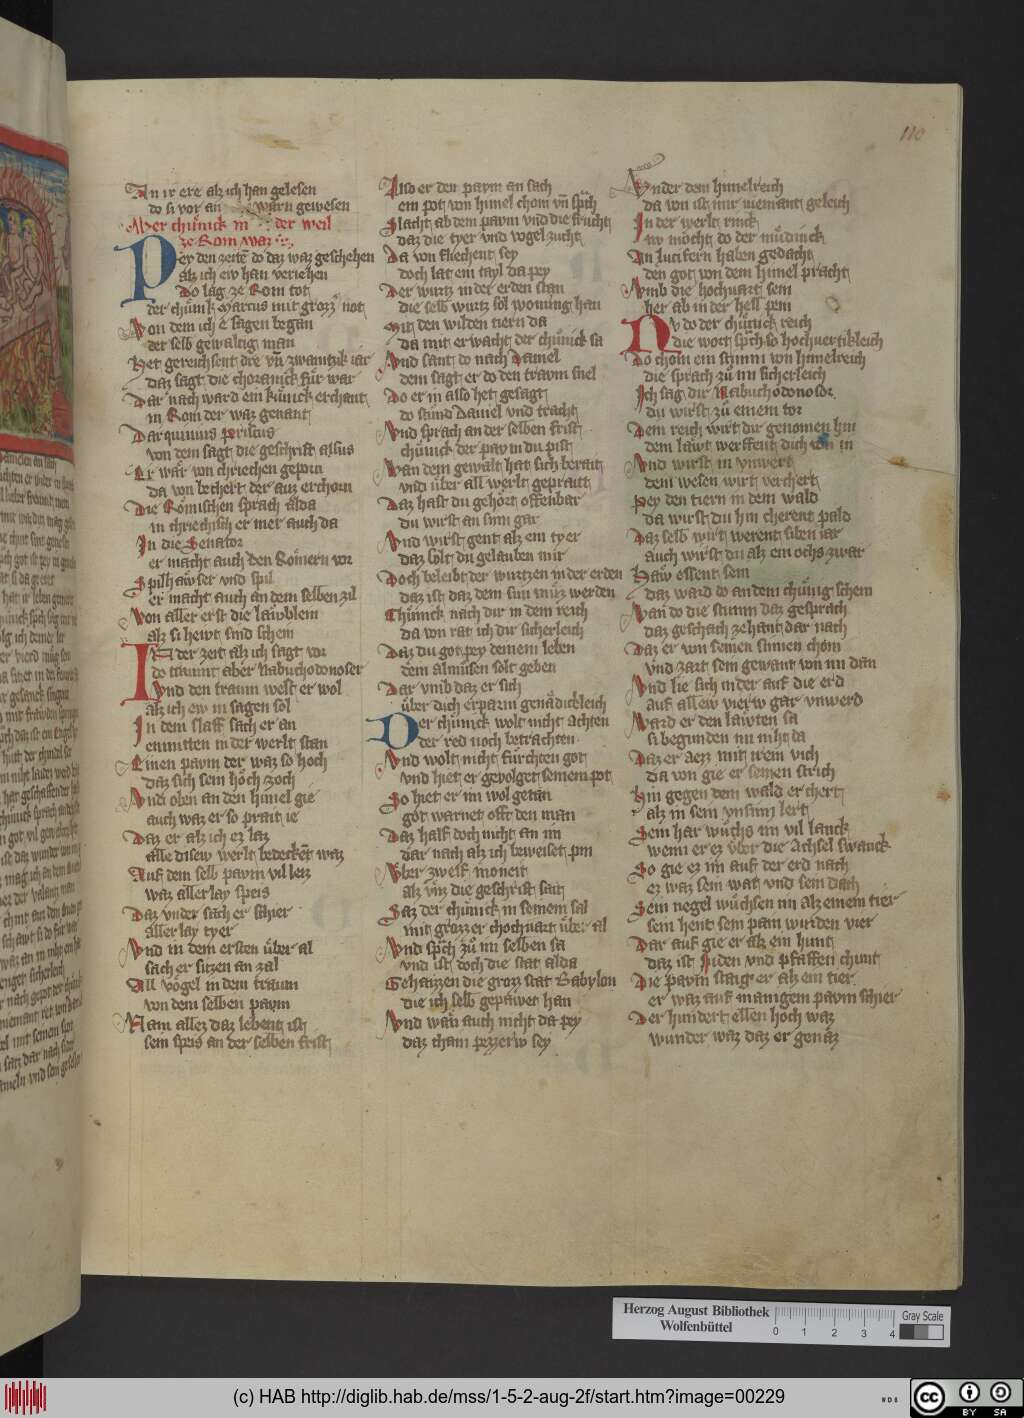 110
An ir ere alz ich han gelesen
do si vor an warn gewesen
Wer chünick in der weil
ze Rom waz
Pey den zeitē do daz waz geschehen
alz ich ew han veriehen
Do lag ze Rom tot
der chünik Marcus mit grozz not
Von dem ich e sagen began
der selb gewaltig man
Het gereichsent dre vn zwaintzik iar
daz sagt die choranick für war
Dar nach ward ein künick erchant
in Rom der waz genant
Darquinius Periscus
von dem sagt die geschrift alsus
Er waz von chriechen geporn
da von bechert der auz erchorn
Die Römischen sprach alda
in chriechisch er mer auch da
In die Senator
er macht auch den Römern vor
Spilhawser vnd spil
er macht auch an dem selben zil
Von aller erst die lawblein
alz si hewt sind schein
In der zeit alz ich sagt vor
do traumt aber Nabuchodonoser
Vnd den traum west er wol
alz ich ew in sagen sol
In dem slaff sach er an
enmitten in der werlt stan
Einen paym der waz so hoch
daz sich sein höch zoch
Vnd oben an den himel gie
auch waz er so prait ie
Daz er alz ich ez laz
alle disew werlt bedecket waz
Auf dem selb paym vil leiz
waz allerlay speis
Daz vnder sach er schier
allerlay tyer
Vnd in dem ersten über al
sach er sitzen an zal
All vögel in dem traum
von dem selben paym
Nam allez daz lebent ist
sein speis an der selben frist
Also er den paym an sach
ein pot von himel chom vn sprch
Slacht ab dem paym vnd die frücht
daz die tyer vnd vogel zucht
Da von fliechent sey
doch lat ein tayl da pey
Der wurtz in der erden stan
die selb wurtz sol wonung han
Mit den wilden tiern da
da mit erwacht der chünick sa
Vnd sant do nach Daniel
dem sagt er do den traym snel
Do er im also het gesagt
do stund Daniel vnd tracht
Vnd sprach an der selben frist
chünick der paym du pist
Wan dem gewalt hat sich berait
vnd über all werlt gepraitt
Daz hast du gehört offenbar
du wirst an sinn gar
Vnd wirst gent alz ein tyer
daz solt du gelauben mir
Doch beleibt der wurtzen in der erden
daz ist daz dein sun müz werden
Chünick nach dir in dem reich
da von rat ich dir sicherleich
Daz du got pey deinem leben
dem almusen solt geben
Dar vmb daz er sich
über dich erparm genädickleich
Der chünick wolt nicht achten
der red noch betrachten
Vnd wolt nicht fürchten got
vnd hiet er gevolget seinem pot
So hiet er im wol getan
got warnet offt den man
Daz half doch nicht an im
dar nach alz ich beweiset pin
Vber zwelf moneit
alz vnz die geschrift sait
Saz der chünick in seinem sal
mit grozzer hochuart über al
Vnd sprch zü im selben sa
vnd ist doch die stat alda
Gehaizzen die groz stat Babylon
die ich selb gepawet han
Vnd wan auch nicht da pey
daz chain pezzerw sey
Vnder dem himelreich
da von ist mir niemant geleich
In der werlt rinck
nv möcht do der müdinck
An lucifern haben gedacht
den got von dem himel pracht
Vmb die hochuart sein
her ab in der hell pein
Nv do der chünick reich
die wort sprch so hochuertikleich
Do chom ein stimm von himelreich
die sprach zü im sicherleich
Ich sag dir Nabuchodonosor
du wirst zü einem tor
Dein reich wirt dir genomen hin
dein läwt werffent dich von in
Vnd wirst in vnwert
dein wesen wirt verchert
Pey den tiern in dem wald
da wirst du hin cherent pald
Daz selb wirt werent siben iar
auch wirst du alz ein ochs zwar
Haw essent sein
daz ward do an dem chünig schein
Wan do die stimm daz gesprach
daz geschach ze hant dar nach
Daz er von seinen sinnen chom
vnd zart sein gewant von im dan
Vnd lie sich in der auf die erd
auf allew vierw gar vnwerd
Ward er den läwten sa
si begunden im nicht da
Daz er aezz mit irem vich
da von gie er seinen strich
Hin gegen dem wald er chert
alz in sein vnsinn lert
Sein har wuchs im vil lanck
wenn er ez über die Achsel swanck
So gie ez im auf der erd nach
ez waz sein wat vnd sein dach
Sein negel wüchsen im alz einem tier
sein hent sein pain wurden vier
Dar auf gie er alz ein hunt
daz ist Juden vnd pfaffen chunt
Die paym staig er alz ein tier
er waz auf manigem paym schier
Der hundert ellen hoch waz
wunder waz daz er genaz
Herzog August Bibliothek
Wolfenbüttel
0 1 2 3 4
Gray Scale
(c) HAB http://diglib.hab.de/mss/1-5-2-aug-2f/start.htm?image=00229
cc BY SA